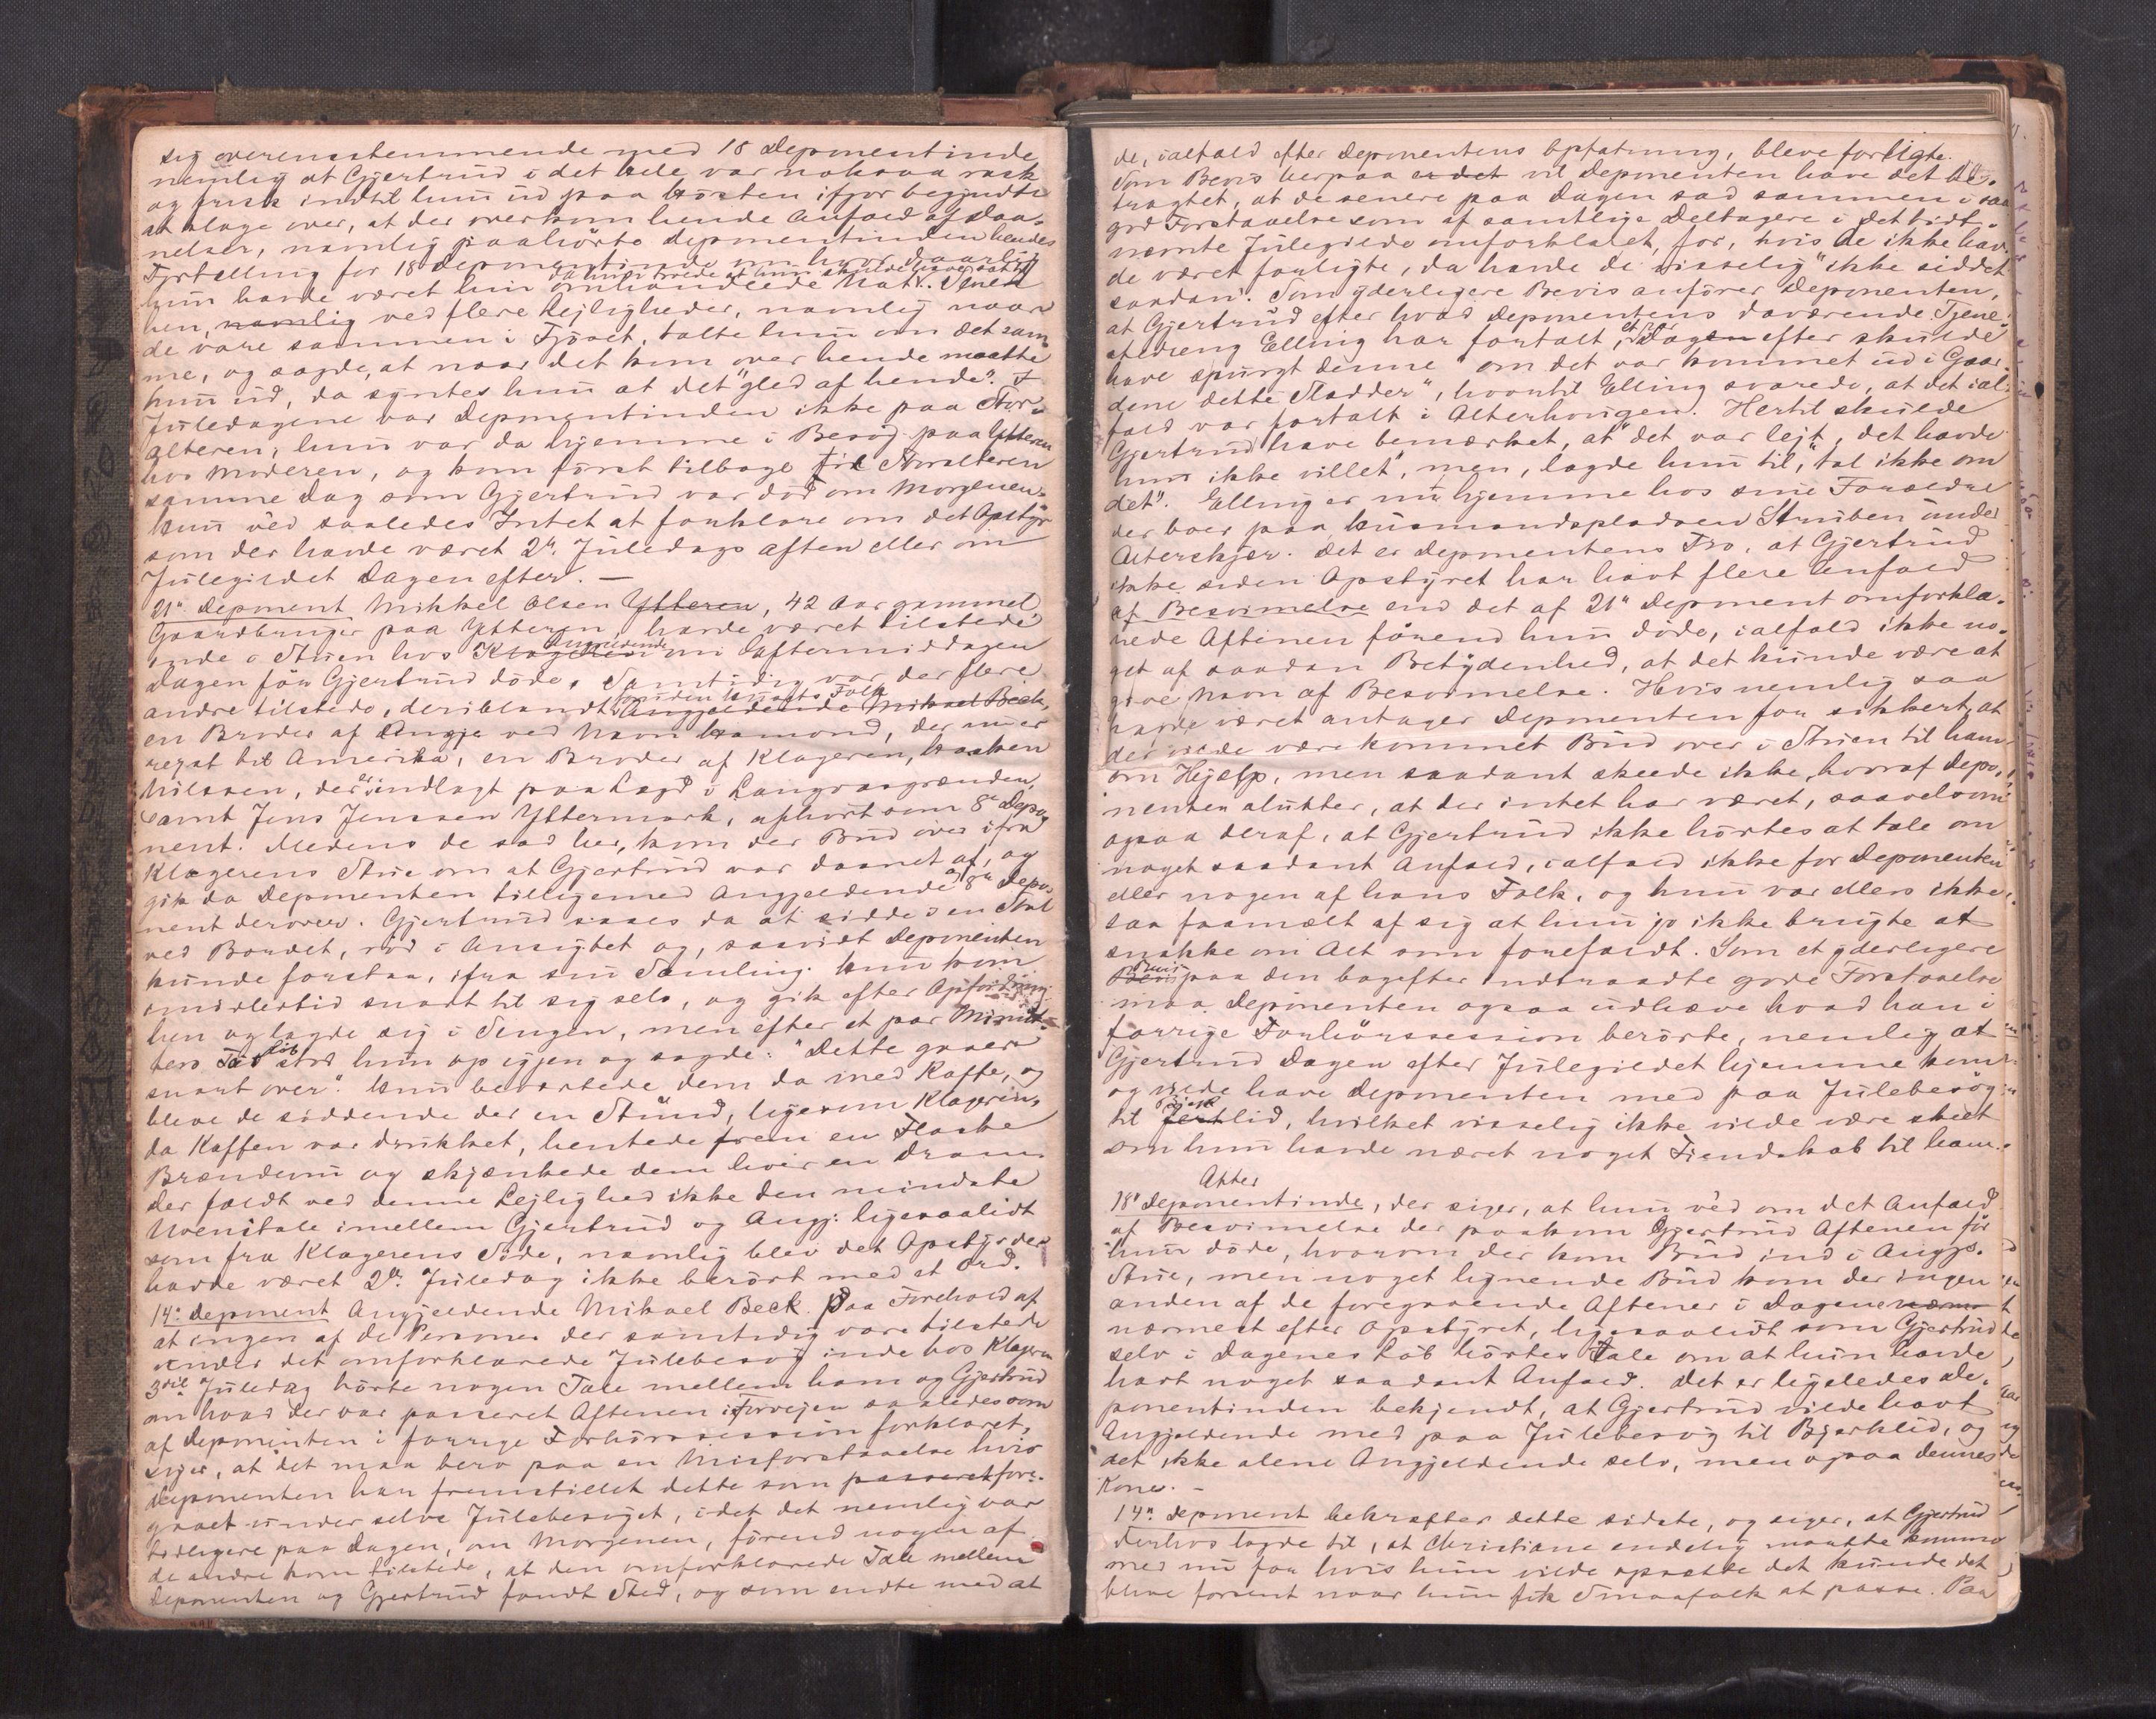 sig overensstemmende med 18 Deponentinde
nemlig at Gjertrud i det hele var noksaa rask
og frisk indtil hun ud paa Høsten ifjor begyndte
at klage over, at der overkom hende Anfald af Daa-
nelser, namlig paahørte Deponentinden hendes
Fortælling for 18 Deponentinde om hvor daarlig
da hun troede at hun skulde have sat til
hun havde været hin omhandlede Nat. Senere
hen, namlig ved flere Lejligheder, namlig naar
de vare sammen i Fjøset, talte hun om det sam-
me, og sagde, at naar det kom over hende maatte
hun ud, da syntes hun at det "gled af hende". I
Juledagene var Deponentinden ikke paa Stor-
alteren, hun var da hjemme i Besøg paa Ytteren
hos Moderen, og kom først tilbage til Storalteren
samme Dag som Gjertrud var död om Morgenen.
Hun ved saaledes Intet at forklare om det Opstyr
som der havde været 2n Juledags aften eller om
Julegildet Dagen efter. —
21n Deponent Mikkel Olsen Ytteren, 42 Aar gammel,
Gaardbruger paa Ytteren, havde været tilstede
inde i Stuen hos Klageren Angjeldende om Eftermiddagen
Dagen før Gjertrud døde. Samtidig var der flere
andre tilstede, deriblandt foruden Husets Folk Angjeldende Mikael Beck,
en Broder af Angje ved Navn Hamond, der nu er
rejst til Amerika, en Broder af Klageren, Haaken
Nilssen, der er indlagt paa Lægd i Langvasgrænden,
samt Jens Jenssen Yttermark, afhørt som 8n Depo-
nent. Medens de sad her, kom der Bud over ifra
Klagerens Stue om at Gjertrud var daanet af, og
gik da Deponenten tilligemed Angjeldende og 8n Depo-
nent derover. Gjertrud saaes da at sidde i en Stol
ved Bordet, rød i Ansigtet og, saavidt Deponenten
kunde forstaa, ifra sin Samling. Hun kom
imidlertid snart til sig selv, og gik efter Opfordring
hen og lagde sig i Sengen, men efter et par Minut-
ters Tid Løb stod hun op igjen og sagde: "Dette gaaer
snart over". Hun bevertede dem da med Kaffe, og
bleve de siddende der en Stund, ligesom Klageren,
da Kaffen var drukket, hentede frem en Flaske
Brændevin og skjænkede dem hver en Dram.
Der faldt ved denne Lejlighed ikke den mindste
Uvenstale imellem Gjertrud og Angj: ligesaalidt
som fra Klagerens Side, namlig blev det Opstyr der
havde været 2n Juledag ikke berørt med et Ord.
14n Deponent Angjeldende Mikael Beck. Paa Forehold af
at ingen af de Personer der samtidig vare tilstede
under det omforklarede Julebesøg inde hos Klageren
3die Juledag hørte nogen Tale mellem ham og Gjertrud
om hvad der var passeret Aftenen i Forvejen saaledes som
af Deponenten i forrige Forhørssession forklaret,
siger, at det maa bero paa en Misforstaaelse hvis
Deponenten har fremstillet dette som passeret fore-
gaaet under selve Julebesøget, idet det nemlig var
tidligere paa Dagen, om Morgenen, førend nogen af
de andre kom tilstede, at den omforklarede Tale mellem
Deponenten og Gjertrud fandt Sted, og som endte med at
de, ialfald efter Deponentens Opfatning, bleve forligte.
Som Bevis herpaa er det vil Deponenten have det be-
tragtet, at de senere paa Dagen sad sammen i saa
god Forstaaelse som af samtlige Deltagere i det bidt-
nemte Julegilde omforklaret, for, hvis de ikke hav-
de været forligte, da havde de visselig "ikke siddet
saadan". Som yderligere Bevis anfører Deponenten,
at Gjertrud efter hvad Deponentens daværende Tjene-
stedreng Elling har fortalt, et par Dagen efter skulde
have spurgt denne "om det var kommet ud i Gaar-
dene dette Sladder", hvortil Elling svarede, at det ial-
fald var fortalt i Alterhougen. Hertil skulde
Gjertrud have bemærket, at "det var lejt, det havde
hun ikke villet", men, lagde hun til, "tal ikke om
det". Elling er nu hjemme hos sine Forældre
der boer paa Husmandspladsen Struben under
Alterskjær. Det er Deponentens Tro, at Gjertrud
ikke siden Opstyret har havt flere Anfald
af Besvimelse end det af 21n Deponent omforkla-
rede Aftenen førend hun døde, ialfald ikke no-
get af saadan Betydenhed, at det kunde være at
give Navn af Besvimelse. Hvis nemlig saa
havde været antager Deponenten for sikkert, at
der vilde være kommet Bud over i Stuen til ham
om Hjælp, men saadant skede ikke, hvoraf Depo-
nenten slutter, at der intet har været, saavelsom
ogsaa deraf, at Gjertrud ikke hørtes at tale om
noget saadant Anfald, ialfald ikke for Deponenten
eller nogen af hans Folk, og hun var ellers ikke
saa faamælt af sig at hun jo ikke brugte at
snakke om Alt som forefaldt. Som et yderligere
Bevis paa den bagefter indtraadte gode Forstaaelse
maa Deponenten ogsaa udhæve hvad han i
forrige Forhørssession berørte, nemlig at
Gjertrud Dagen efter Julegildet hjemme kom
og vilde have Deponenten med paa Julebesøg
til Bjerklid, hvilket visselig ikke vilde være skeet
om hun havde næret noget Fiendskab til ham.
Atter
18n Deponentinde, der siger, at hun vèd om det Anfald
af Besvimelse der paakom Gjertrud Aftenen før
hun døde, hvorom der kom Bud ind i Angjs.
Stue, men noget lignende Bud kom der ingen
anden af de foregaaende Aftener i Dagene
nærmest efter Opstyret, ligesaalidt som Gjertrud
selv i Dagenes Løb hørtes Tale om at hun havde
havt noget saadant Anfald. Det er ligeledes De-
ponentinden bekjendt, at Gjertrud vilde havt
Angjeldende med paa Julebesøg til Bjerklid, og
det ikke alene Angjeldende selv, men ogsaa dennes
Kone. —
14n Deponent bekræfter dette sidste, og siger, at Gjertrud
derhos lagde til, at Christiane endelig maatte komme
med nu for hvis hun vilde opsætte det kunde det
blive forsent naar hun fik Smaafolk at passe. Paa